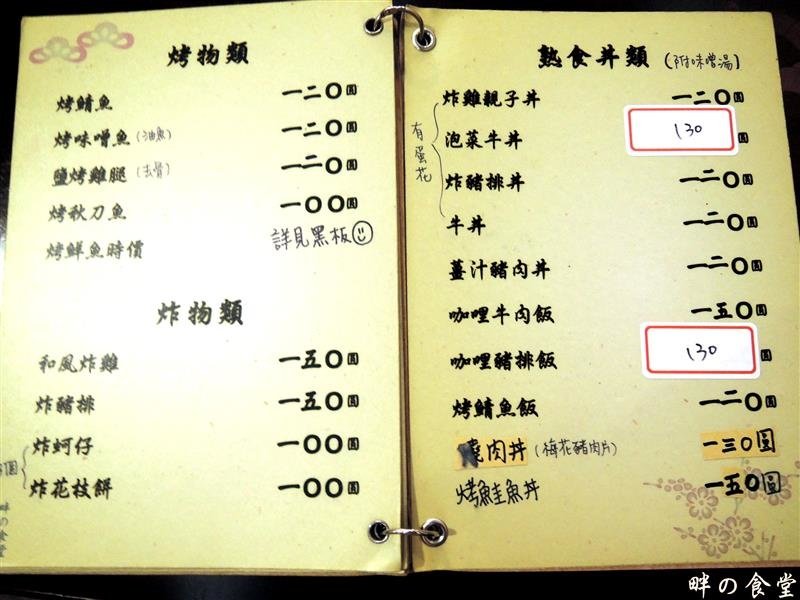 烤物類
烤鯖魚 一二〇圓
烤味噌魚(油魚) 一二〇圓
鹽烤雞腿(去骨) 一二〇圓
烤秋刀魚 一〇〇圓
烤鮮魚時價 詳見黑板
炸物類
和風炸雞 一五〇圓
炸豬排 一五〇圓
炸蚵仔 一〇〇圓
炸花枝餅 一〇〇圓
畔の食堂
熟食丼類(附味噌湯)
炸雞親子丼 一二〇圓
泡菜牛丼 130
炸豬排丼 一二〇圓
牛丼 一二〇圓
有蛋花
薑汁豬肉丼 一二〇圓
咖哩牛肉飯 一五〇圓
咖哩豬排飯 130
烤鯖魚飯 一二〇圓
燒肉丼(梅花豬肉片) 一三〇圓
烤鮭魚丼 一五〇圓
畔の食堂